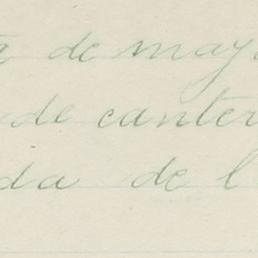 a de may
de canter
da de l